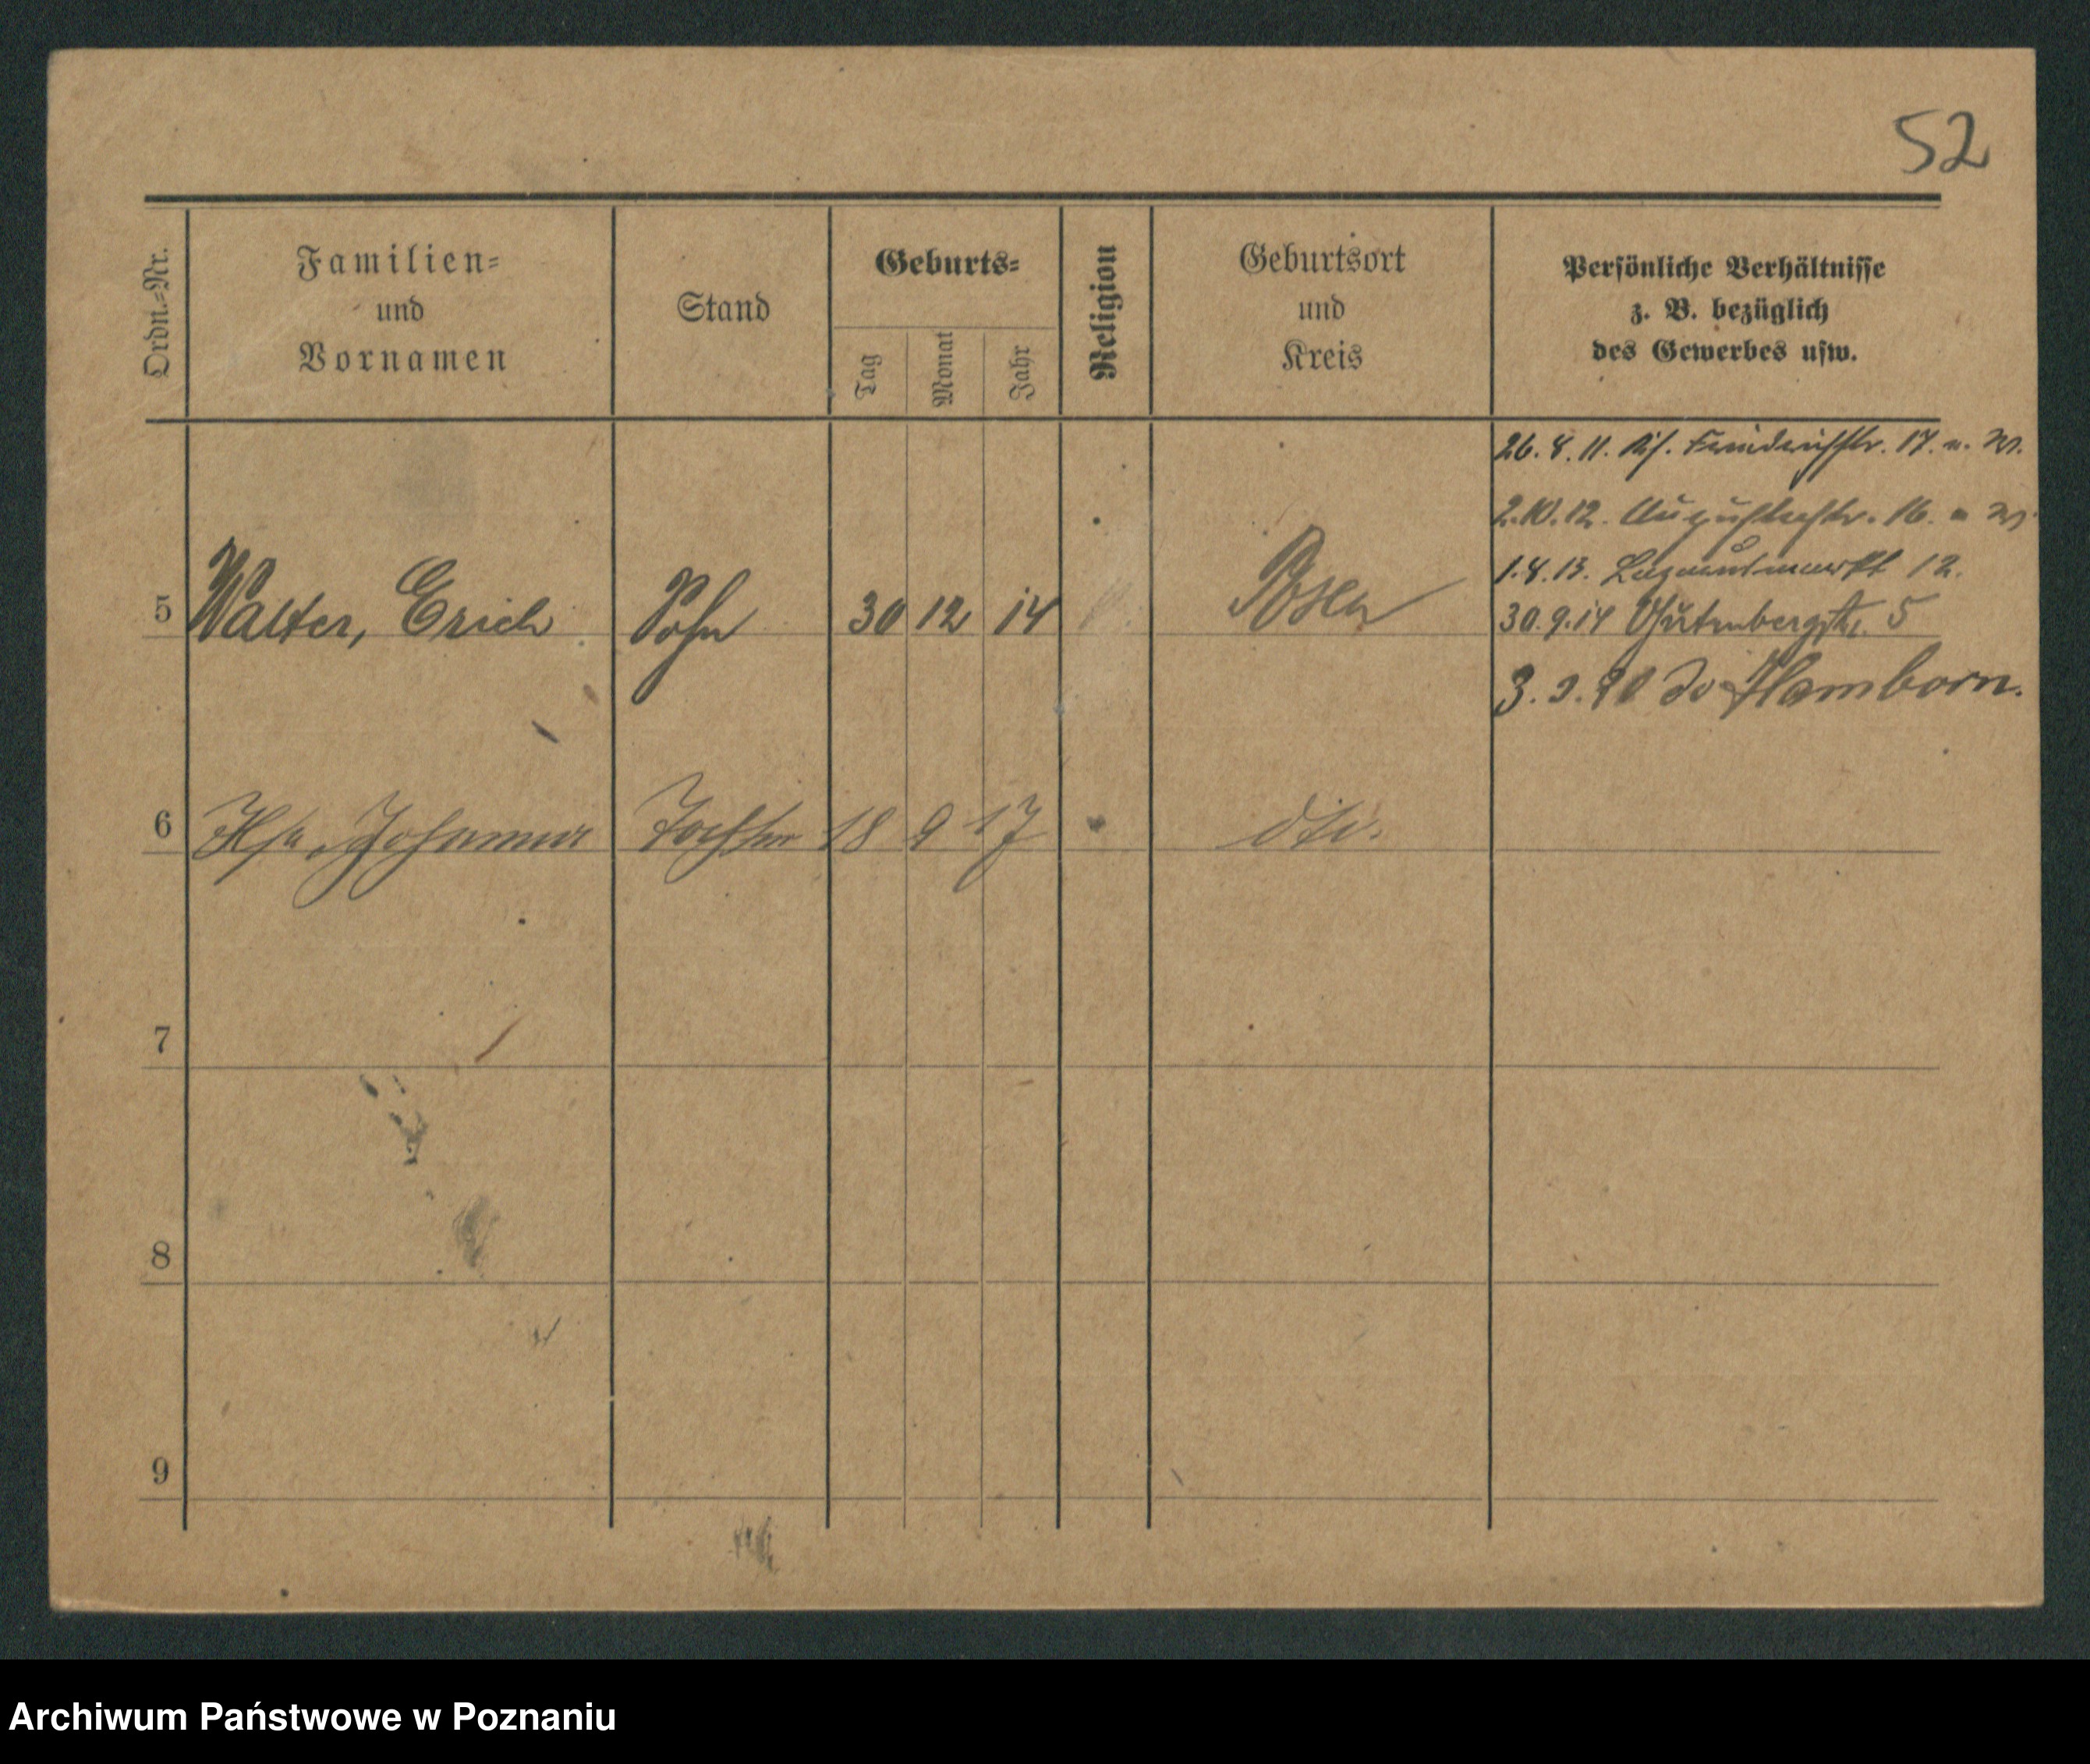 52
Ordn.-Nr.
Familien-
und
Vornamen
Stand
Geburts-
Tag
Monat
Jahr
Religion
Geburtsort
und
Kreis
Persönliche Verhältnisse
z. B. bezüglich
des Gewerbes usw.
26.8.11. Friedrichstr. 17.
2.10.12. Augustastr. 16.
1.4.13. 12.
5 Walter, Erich Sohn 30 12 14 Posen 30.9.14 Gutenbergstr. 5
Hamborn.
6 Ilse, Johanna Tochter 18 9 17 dto.
7
8
9
Archiwum Państwowe w Poznaniu